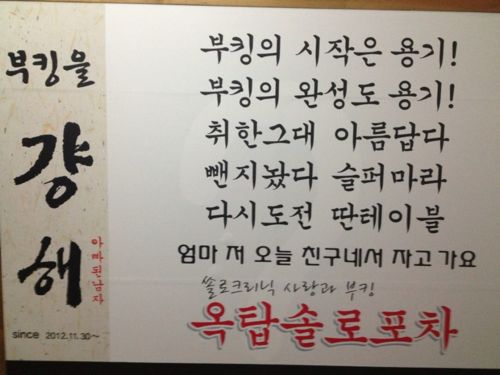 부킹을
걍
해
아빠된남자
since 2012.11.30~
부킹의 시작은 용기!
부킹의 완성도 용기!
취한그대 아름답다
뺀지놨다 슬퍼마라
다시도전 딴테이블
엄마 저 오늘 친구네서 자고 가요
쏠로크리닉 사랑과 부킹
옥탑솔로포차